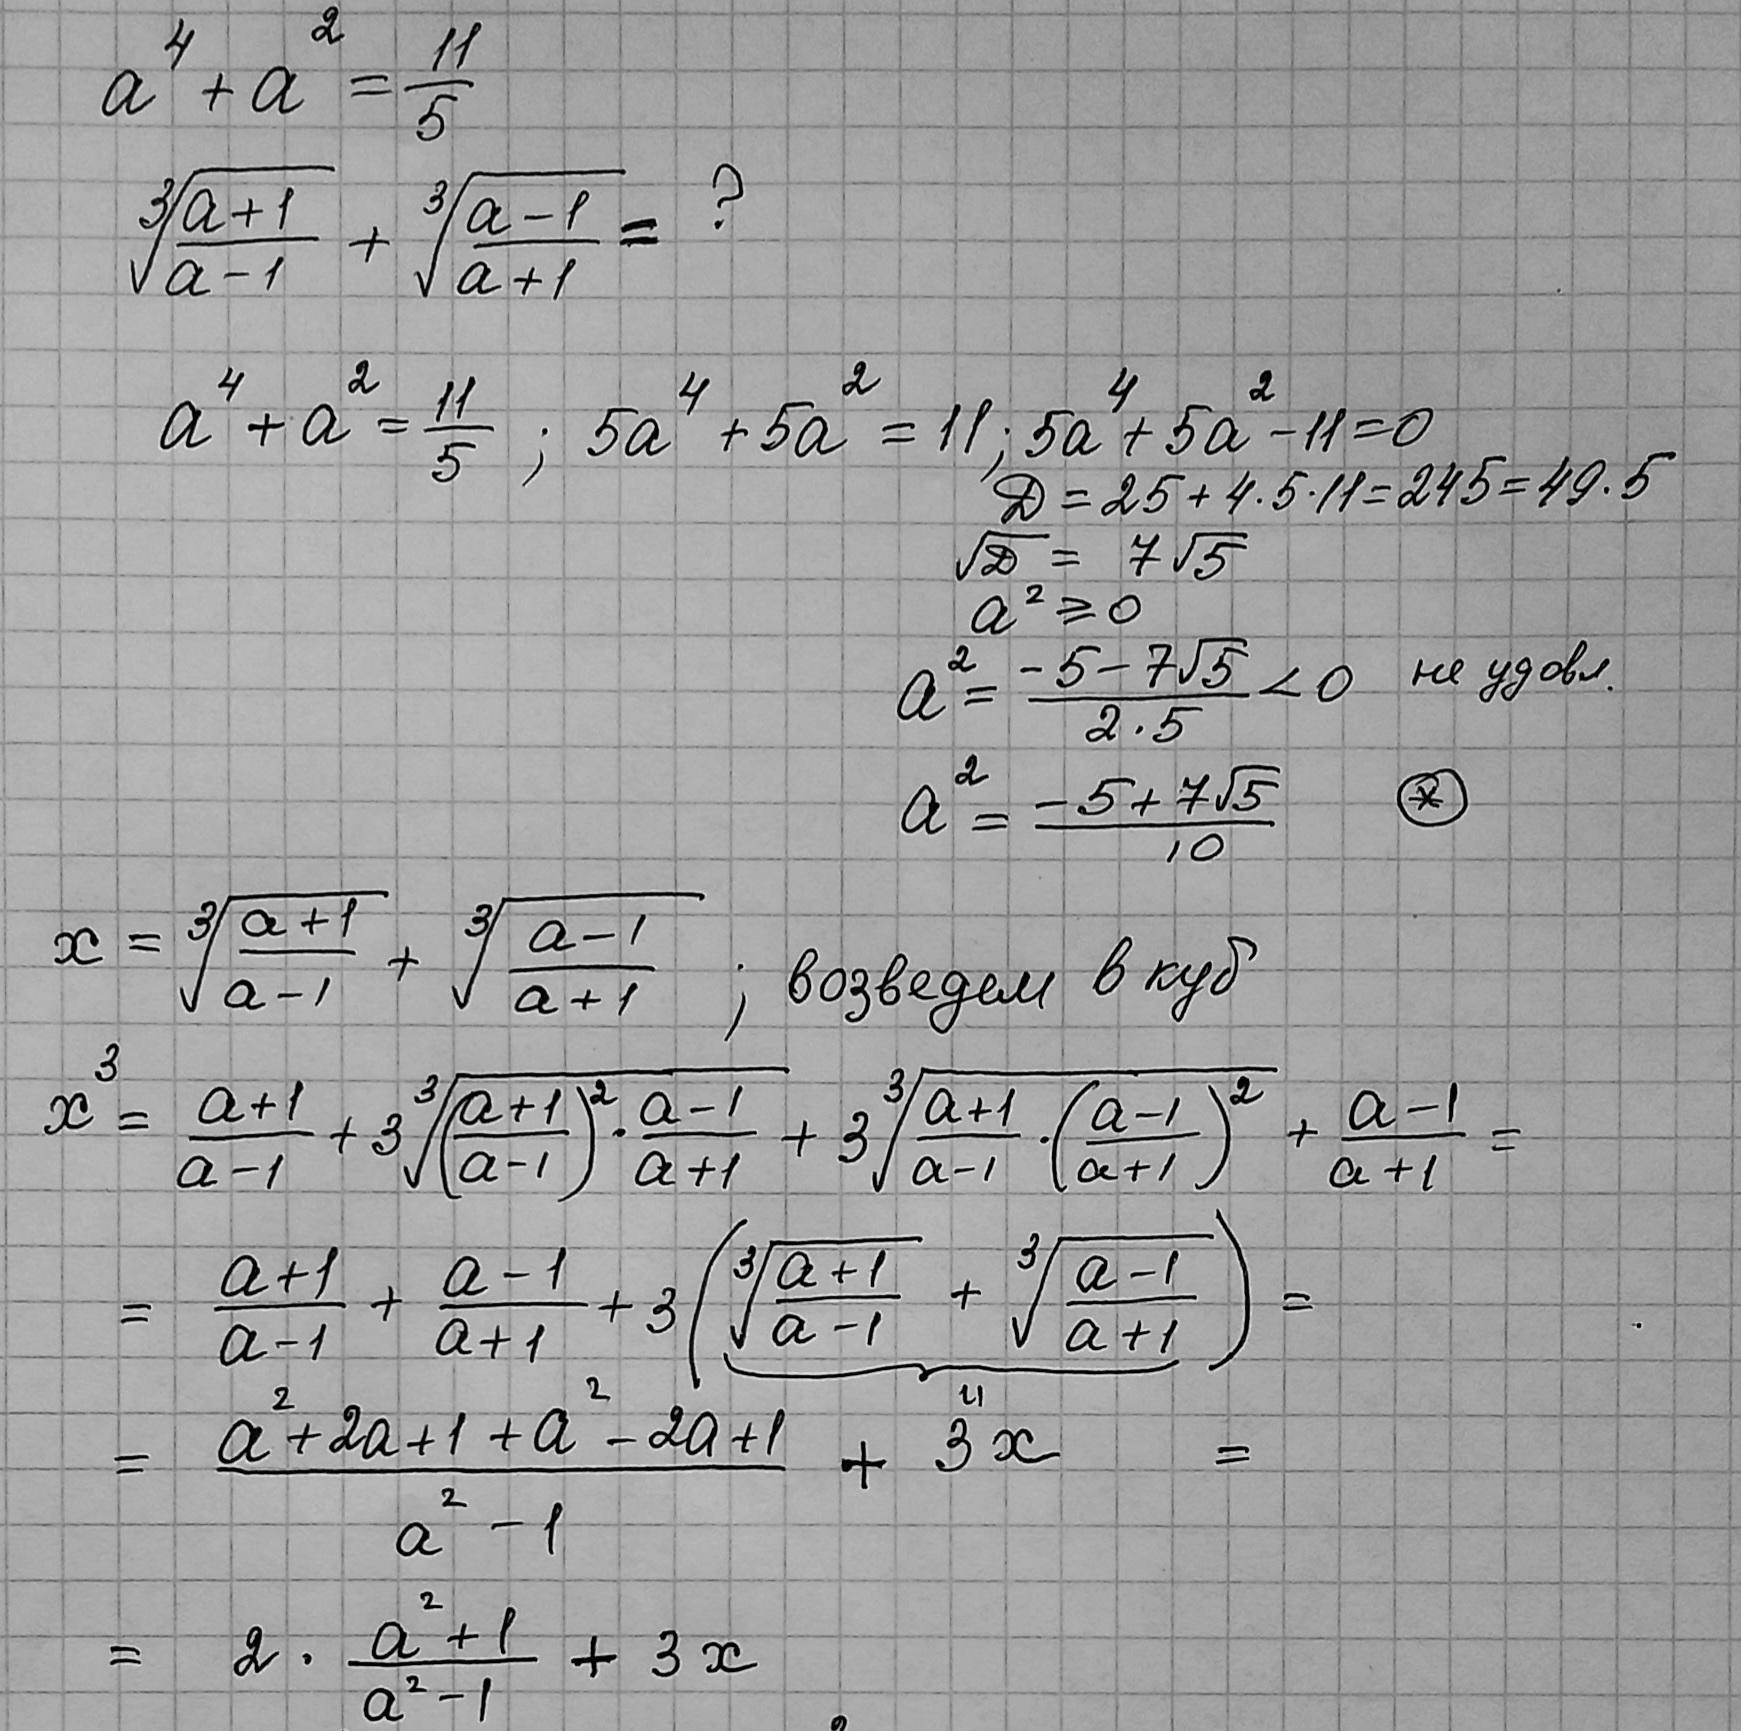 a⁴ + a² = 11/5
∛((a+1)/(a-1)) + ∛((a-1)/(a+1)) = ?
a⁴ + a² = 11/5 ; 5a⁴ + 5a² = 11 ; 5a⁴ + 5a² - 11 = 0
D = 25 + 4·5·11 = 245 = 49·5
√D = 7√5
a² ≥ 0
a² = (-5-7√5)/(2·5) < 0 не удовл.
a² = (-5+7√5)/10 (*)
x = ∛((a+1)/(a-1)) + ∛((a-1)/(a+1)) ; возведем в куб
x³ = (a+1)/(a-1) + 3∛(((a+1)/(a-1))² · (a-1)/(a+1)) + 3∛((a+1)/(a-1) · ((a-1)/(a+1))²) + (a-1)/(a+1) =
= (a+1)/(a-1) + (a-1)/(a+1) + 3(∛((a+1)/(a-1)) + ∛((a-1)/(a+1))) =
= (a²+2a+1+a²-2a+1)/(a²-1) + 3x =
= 2 · (a²+1)/(a²-1) + 3x